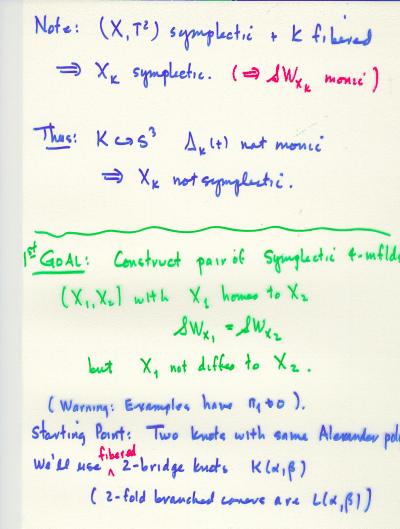 Note: (X, T²) symplectic + K fibered
⇒ X_K symplectic. (⇒ SW_{X_K} monic)
Thus: K ↪ S³ Δ_K(t) not monic
⇒ X_K not symplectic.
1st GOAL: Construct pair of Symplectic 4-mflds
(X₁, X₂) with X₁ homeo to X₂
SW_{X₁} = SW_{X₂}
but X₁ not diffeo to X₂.
(Warning: Examples have π₁ ≠ 0).
Starting Point: Two knots with same Alexander pol
We'll use fibered 2-bridge knots K(α,β)
(2-fold branched covers are L(α,β))